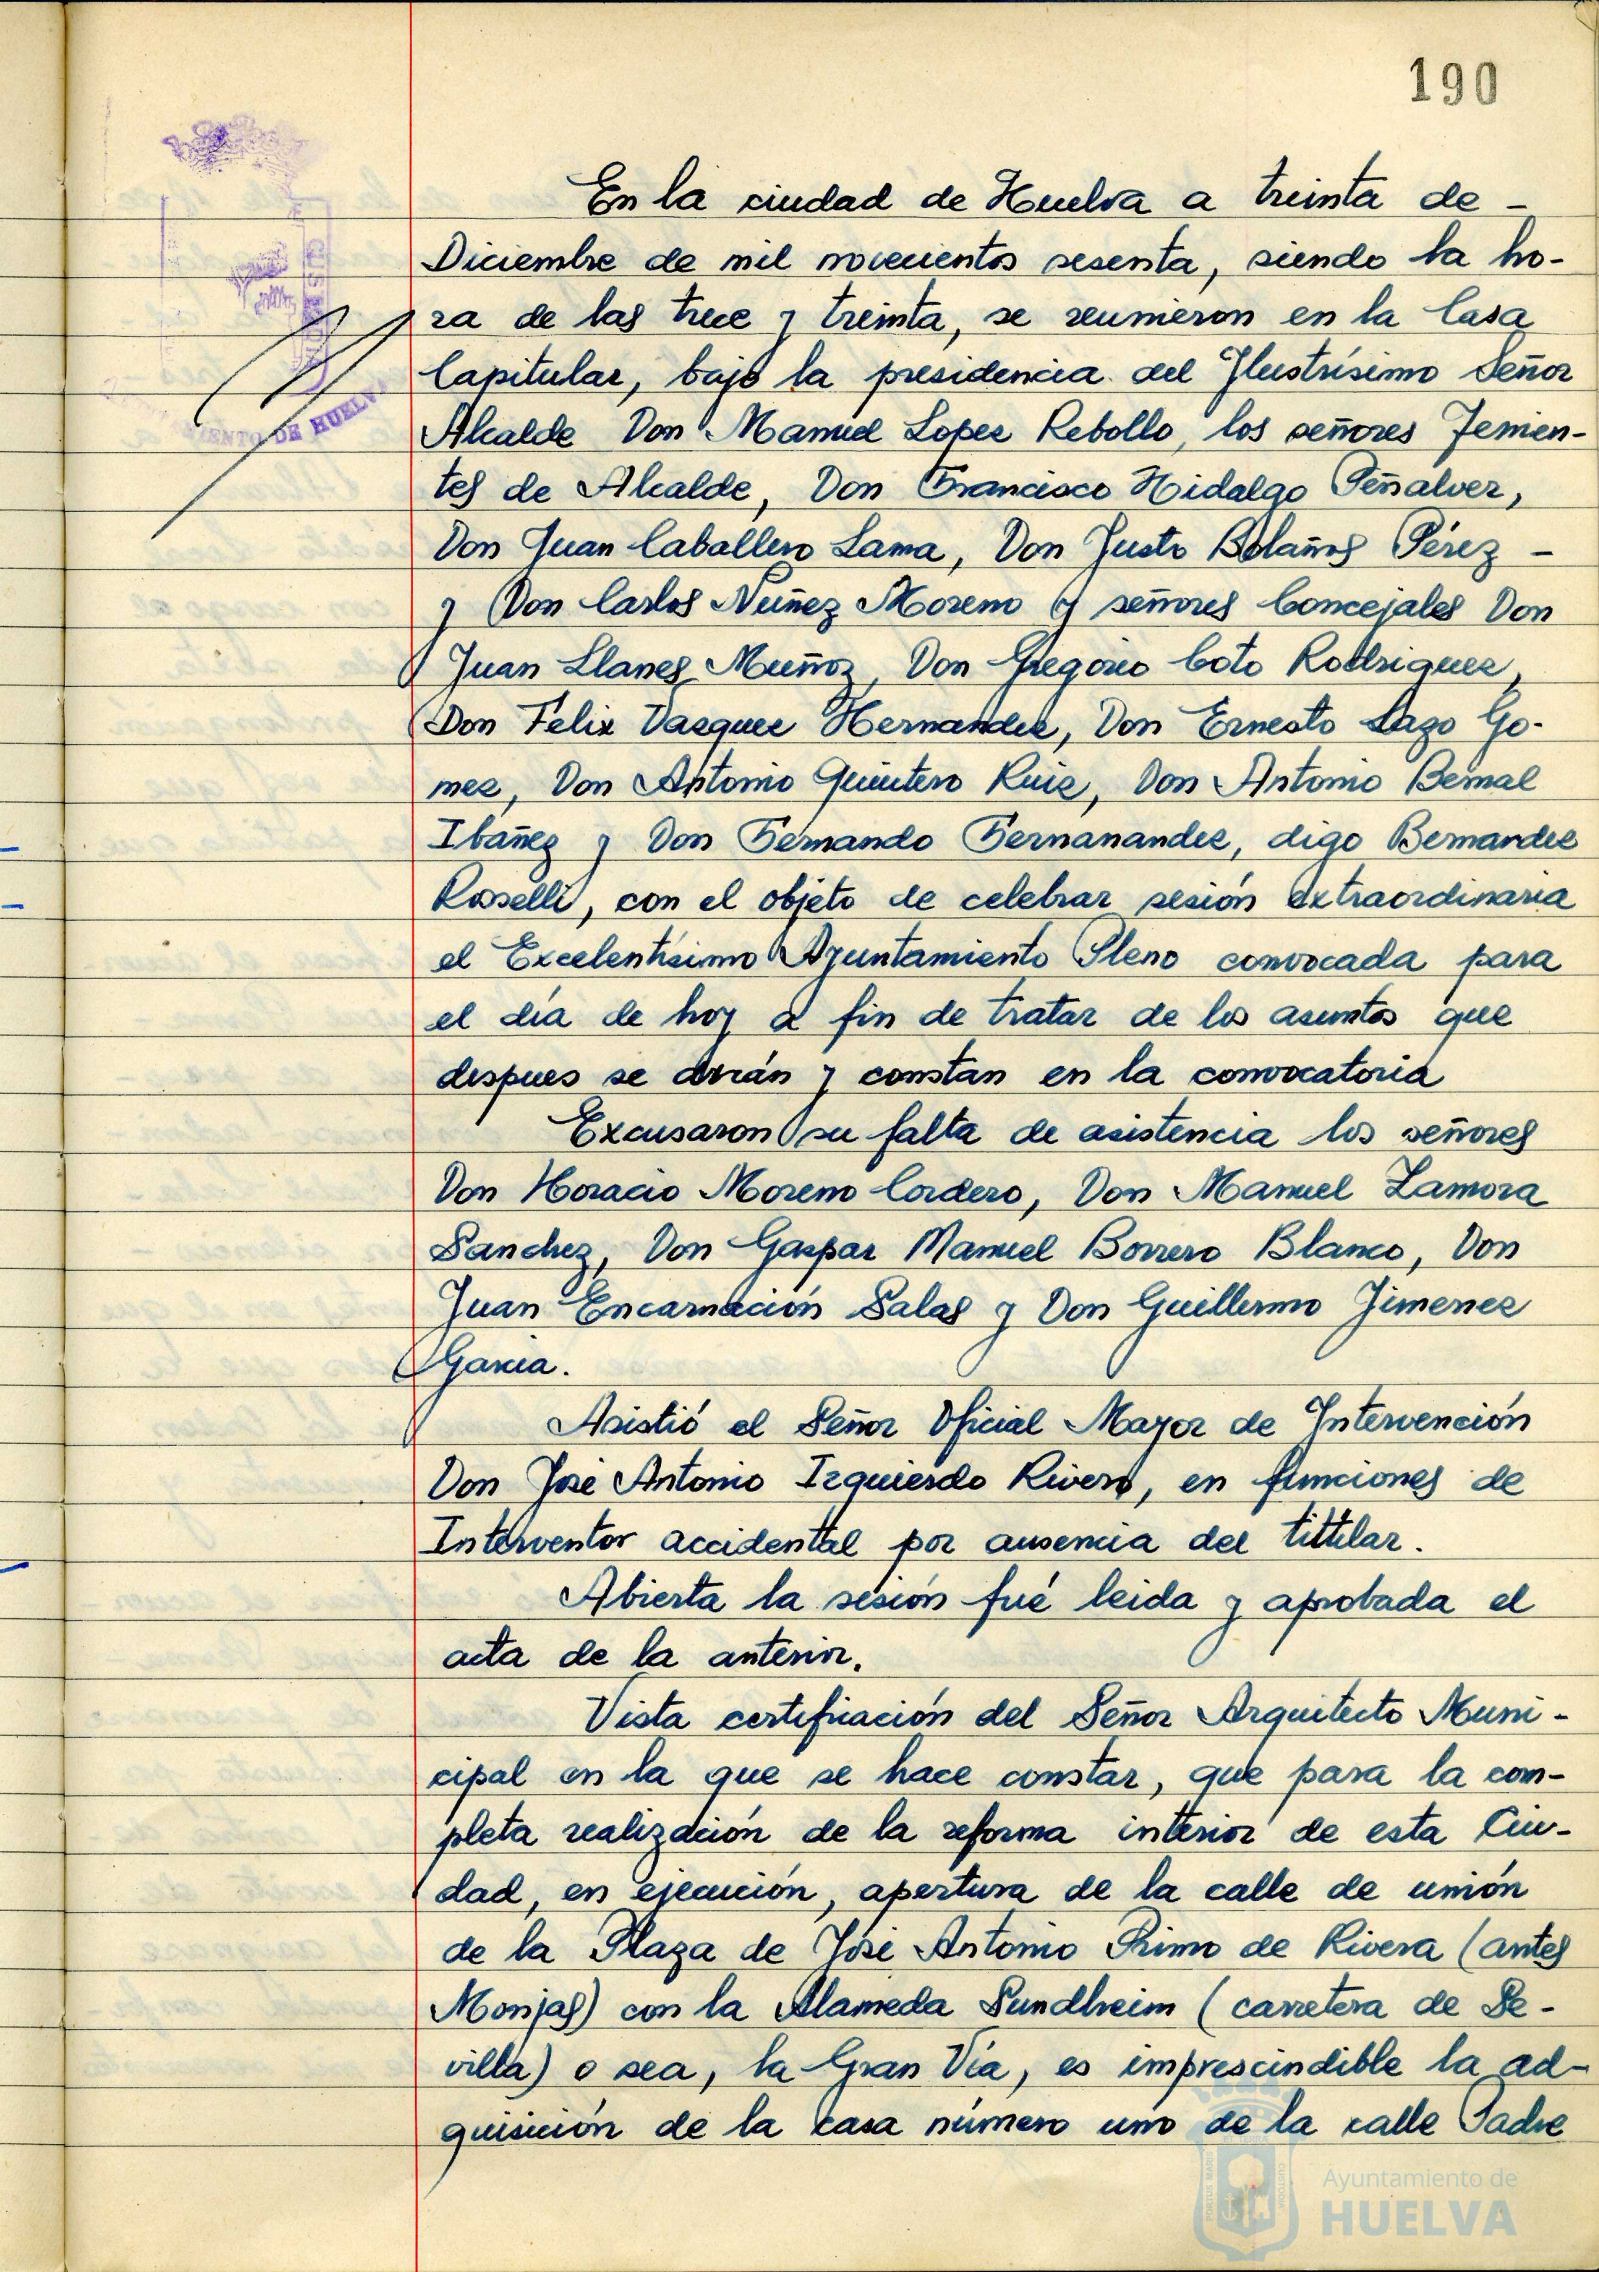 190
En la ciudad de Huelva a treinta de -
Diciembre de mil novecientos sesenta, siendo la ho-
ra de las trece y treinta, se reunieron en la Casa
Capitular, bajo la presidencia del Ilustrísimo Señor
Alcalde Don Manuel Lopez Rebollo, los señores Tenien-
tes de Alcalde, Don Francisco Hidalgo Peñalver,
Don Juan Caballero Lama, Don Justo Bolaños Pérez -
y Don Carlos Núñez Moreno y señores Concejales Don
Juan Llanes Muñoz, Don Gregorio Coto Rodriguez,
Don Felix Vazquez Hernandez, Don Ernesto Lazo Go-
mez, Don Antonio Quintero Ruiz, Don Antonio Bernal
Ibáñez y Don Fernando Fernanandez, digo Bernandez
Roselli, con el objeto de celebrar sesión extraordinaria
el Excelentísimo Ayuntamiento Pleno convocada para
el día de hoy a fin de tratar de los asuntos que
despues se dirán y constan en la convocatoria
Excusaron su falta de asistencia los señores
Don Horacio Moreno Cordero, Don Manuel Zamora
Sanchez, Don Gaspar Manuel Borrero Blanco, Don
Juan Encarnación Salas y Don Guillermo Jimenez
Garcia.
Asistió el Señor Oficial Mayor de Intervención
Don José Antonio Izquierdo Rivero, en funciones de
Interventor accidental por ausencia del tittular.
Abierta la sesión fué leida y aprobada el
acta de la anterior.
Vista certificación del Señor Arquitecto Muni-
cipal en la que se hace constar, que para la com-
pleta realización de la reforma interior de esta Ciu-
dad, en ejecución, apertura de la calle de unión
de la Plaza de José Antonio Primo de Rivera (antes
Monjas) con la Alameda Sundheim (carretera de Se-
villa) o sea, la Gran Vía, es imprescindible la ad-
quisición de la casa número uno de la calle Padre
CUSTODIA
AYUNTAMIENTO DE HUELVA
PORTUS MARIS
CUSTODIA
Ayuntamiento de
HUELVA